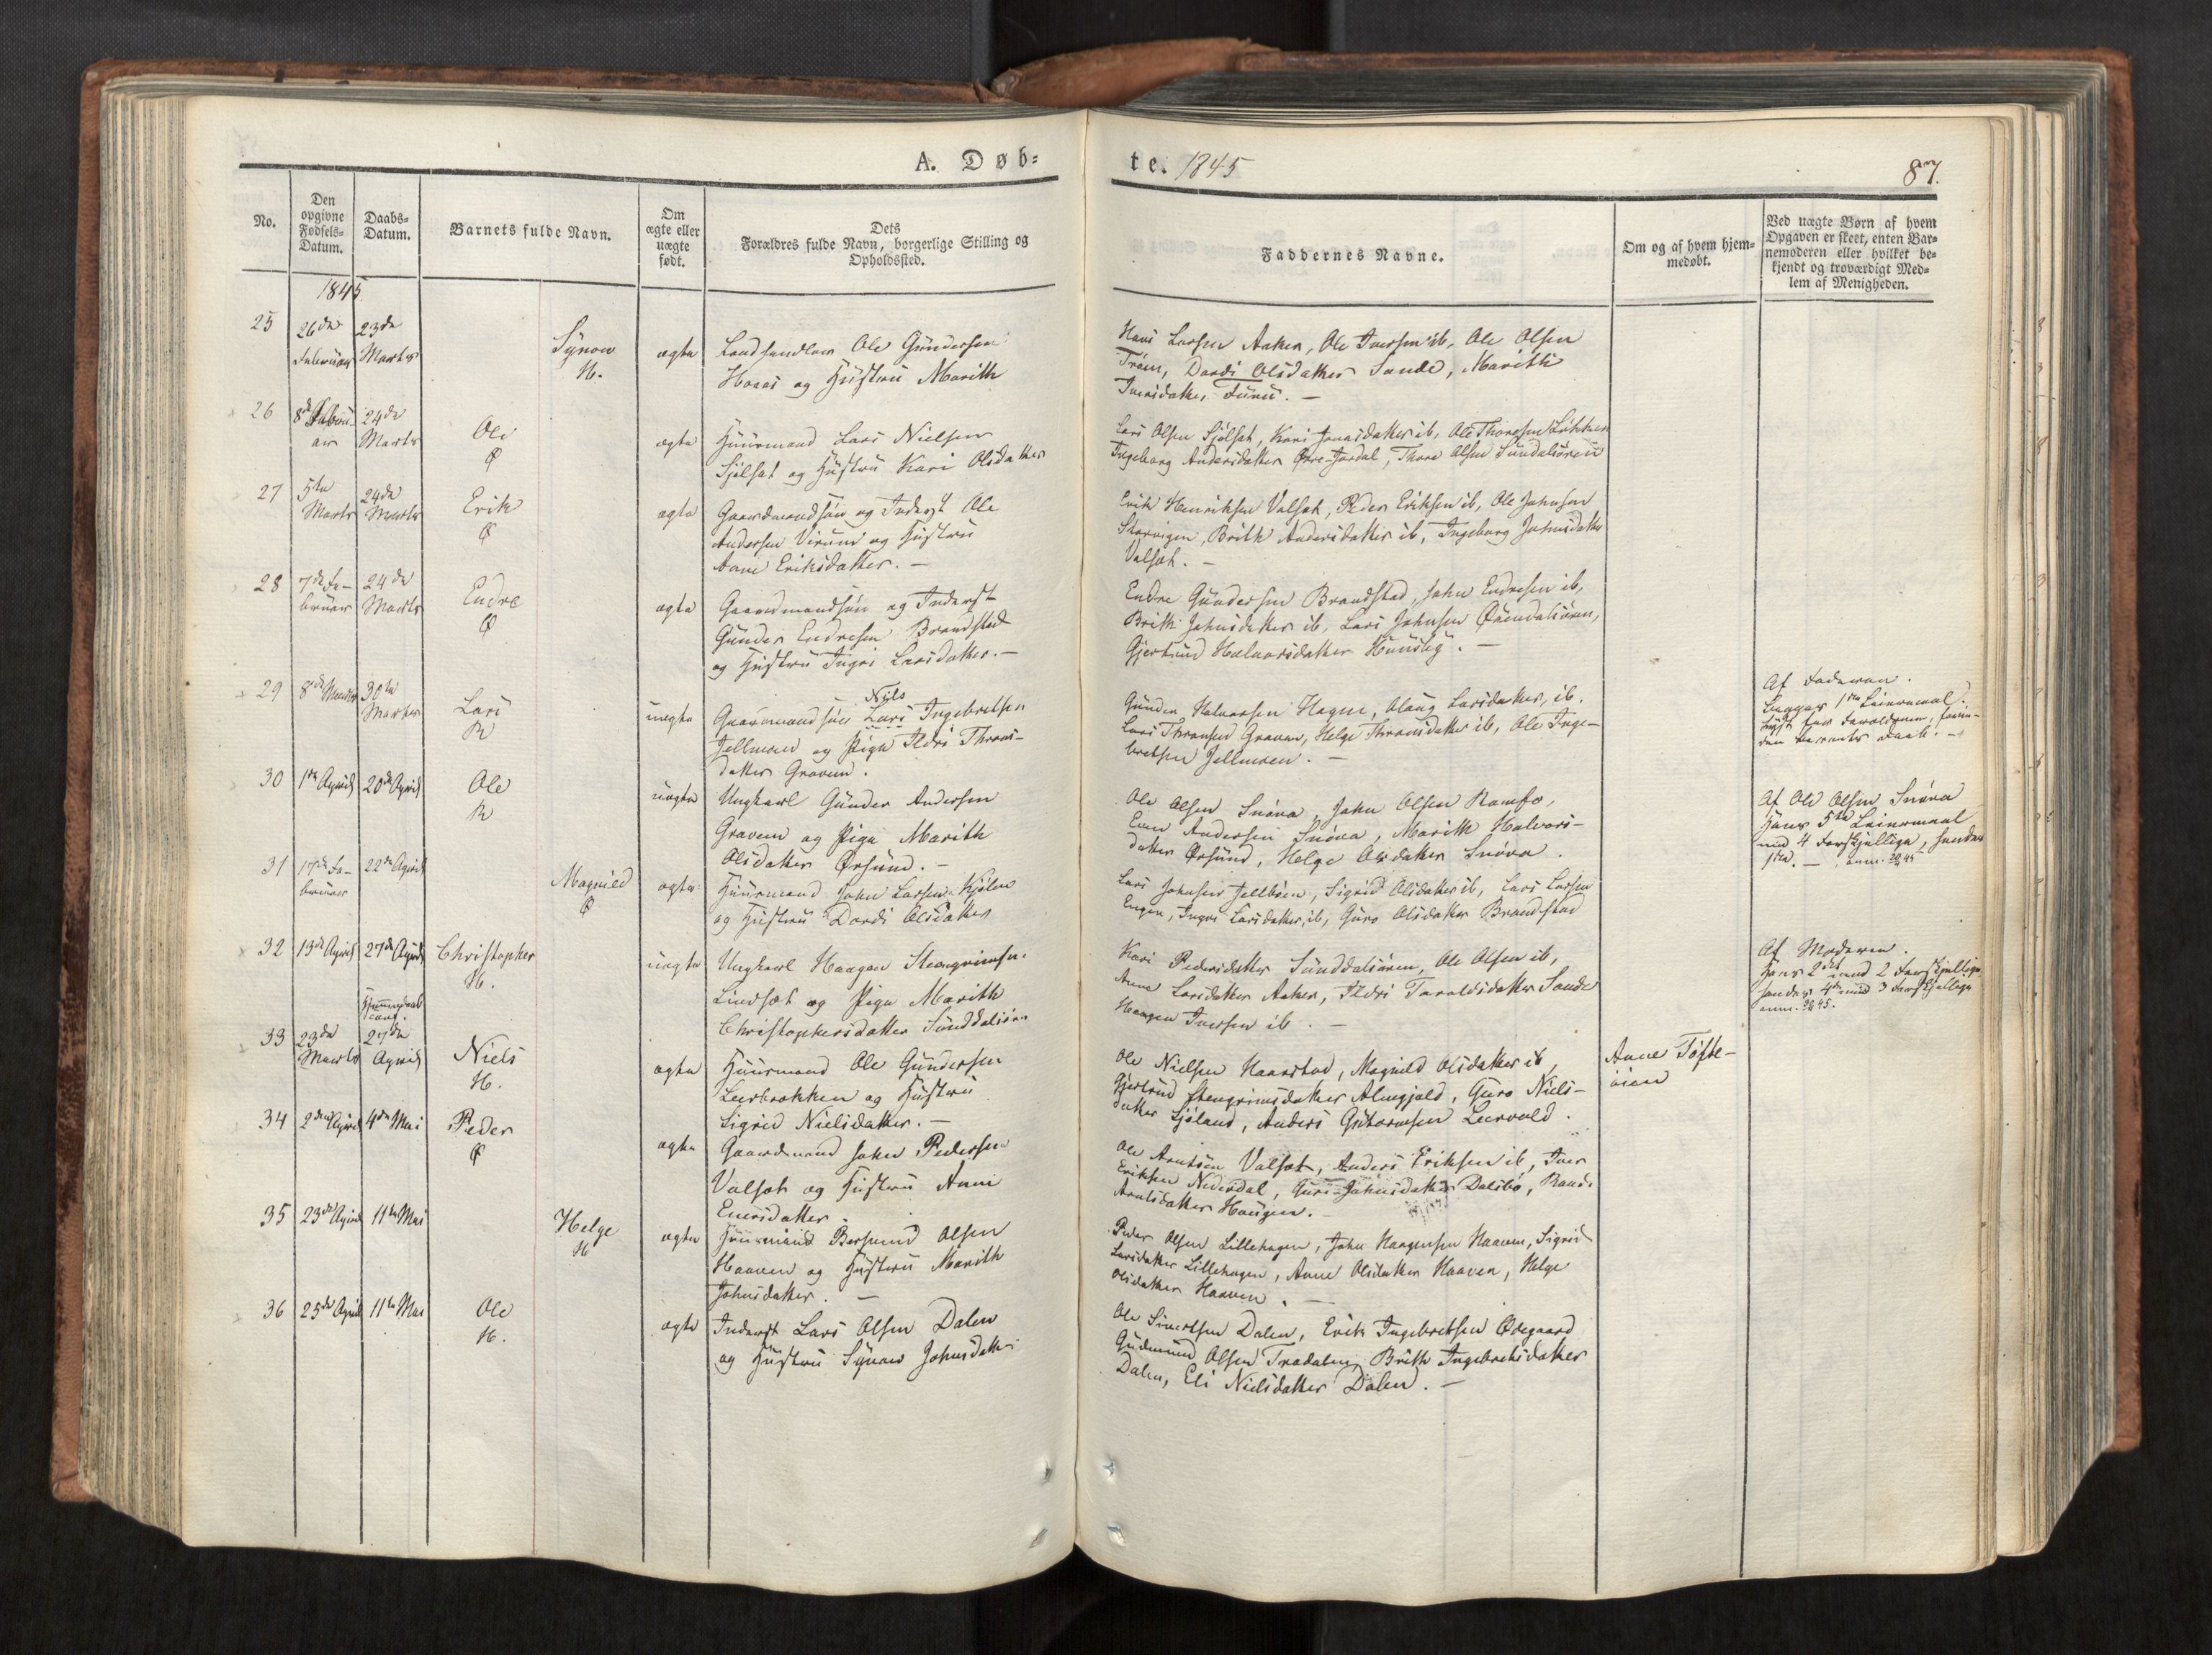 A. Døb=
te. 1845
87.
No.
Den
opgivne
Fødsels=
Datum.
Daabs=
Datum.
Barnets fulde Navn.
Om
ægte eller
uægte
født.
Dets
Forældres fulde Navn, borgerlige Stilling og
Opholdssted.
Faddernes Navne.
Om og af hvem hjem=
medøbt.
Ved uægte Børn af hvem
Opgaven er skeet, enten Bar=
nemoderen eller hvilket be=
kjendt og troværdigt Med=
lem af Menigheden.
1845
25
26de
Februar
23de
Marts
Synow
H.
ægte
Landhandler Ole Gundersen
Hoaas og Hustru Marith
Hans Larsen Aaker, Ole Iversen ib, Ole Olsen
Trøen, Dordi Olsdatter Sande, Marith
Iversdatter Furu. —
26
8de Febru-
ar
24de
Marts
Ole
Ø
ægte
Huusmand Lars Nielsen
Sjølset og Hustru Kari Olsdatter
Lars Olsen Sjølset, Kari Jonasdatter ib, Ole Thoresen Løkken
Ingeborg Andersdatter Øvre-Jordal, Thore Olsen Sundalsøren
27
5te
Marts
24de
Marts
Erik
Ø
ægte
Gaardmandsøn og Inderst Ole
Andersen Virum og Hustru
Anne Eriksdatter. —
Erik Henriksen Valset, Peder Eriksen ib, Ole Johnsen
Storvigen, Brith Andersdatter ib, Ingeborg Johnsdatter
Valset. —
28
7de Fe-
bruar
24de
Marts
Endre
Ø
ægte
Gaardmandsøn og Inderst
Gunder Endresen Brandstad
og Hustru Ingri Larsdatter. —
Endre Gundersen Brandstad, John Endresen ib,
Brith Johnsdatter ib, Lars Johnsen Øxendalsøren,
Gjertrud Halvorsdatter Huusby. —
29
8de Marts
30te
Marts
Lars
R
uægte
Gaardmandsøn Lars Ingebretsen
Niels
Jellmoen og Pige Ildri Thrond-
datter Gravem.
Gunder Halvorsen Hagen, Olaug Larsdatter, ib.
Lars Thronsen Gravem, Helge Thronsdatter ib, Ole Inge-
bretsen Jellmoen. —
Af Faderen.
Begges 1ste Leiermaal.
30
1ste April
20de April
Ole
R
uægte
Ungkarl Gunder Andersen
Gravem og Pige Marith
Olsdatter Ørsund. —
Ole Olsen Snøva, John Olsen Romfo,
Even Andersen Snøva, Marith Halvors-
datter Ørsund, Helge Olsdatter Snøva.
Af Ole Olsen Snøva
Hans 5te Leiermaal
med 4 Forskjellige, hendes
1ste. —
31
17de Fe-
bruar
22de April
Magnild
Ø
ægte
Huusmand John Larsen Kjølen
og Hustru Dordi Olsdatter
Lars Johnsen Jellbøen, Sigrid Olsdatter ib, Lars Larsen
Engen, Ingri Larsdatter, ib, Guro Olsdatter Brandstad
32
13de April
27de April
Christopher
H.
uægte
Ungkarl Haagen Steengrimsen
Lindset og Pige Marith
Christophersdatter Sunddalsøren
Kari Pedersdatter Sunddalsøren, Ole Olsen ib,
Anne Larsdatter Aaker, Ildri Taraldsdatter Sande
Haagen Iversen ib. —
Af Moderen.
Hans 2det med 2 Forskjellige,
hendes 4de med 3 Forskjellige
33
23de
Marts
27de
April
Niels
H.
ægte
Huusmand Ole Gundersen
Leerbrokken og Hustru
Sigrid Nielsdatter. —
Ole Nielsen Haarstad, Magnild Olsdatter ib,
Gjertrud Steengrimsdatter Almsgjeld, Guro Niels-
datter Sjøland, Anders Guttormsen Leervold.
Anne Tøfte-
øien
34
2den April
4de Mai
Peder
Ø
ægte
Gaardmand John Pedersen
Valset og Hustru Anne
Eversdatter.
Ole Arntsen Valset, Anders Eriksen ib, Iver
Eriksen Nedredal, Guri Johnsdatter Dalsbø, Randi
Arntsdatter Haugen. —
35
23de April
11te Mai
Helge
H
ægte
Huusmand Bersvend Olsen
Haaven og Hustru Marith
Johnsdatter. —
Peder Olsen Lillehagen, John Haagensen Haaven, Sigrid
Larsdatter Lillehagen, Anne Olsdatter Haaven, Helge
Olsdatter Haaven. —
36
25de April
11te Mai
Ole
H.
ægte
Inderst Lars Olsen Dalen
og Hustru Synow Johnsdatter
Ole Sivertsen Dalen, Erik Ingebretsen Ødegaard,
Gudmund Olsen Tradalen, Brith Ingebretsdatter
Dalen, Eli Nielsdatter Dalen. —